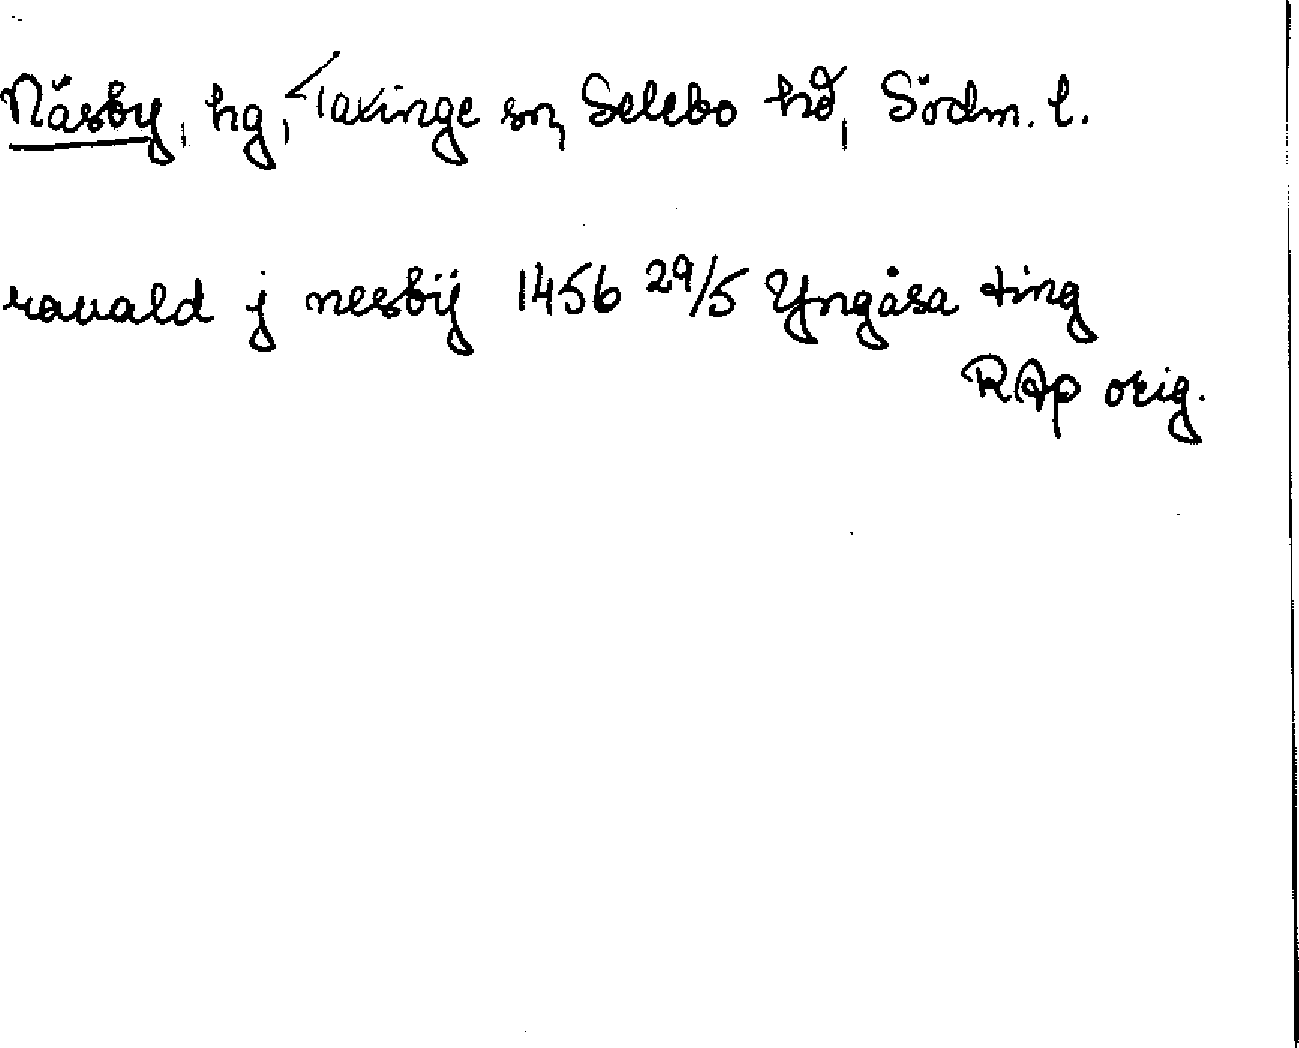 Näsby, hg, Taxinge sn, Selebo hd, Södm. l.
rauald j nesbÿ 1456 29/5 Yngåsa ting
RAp orig.